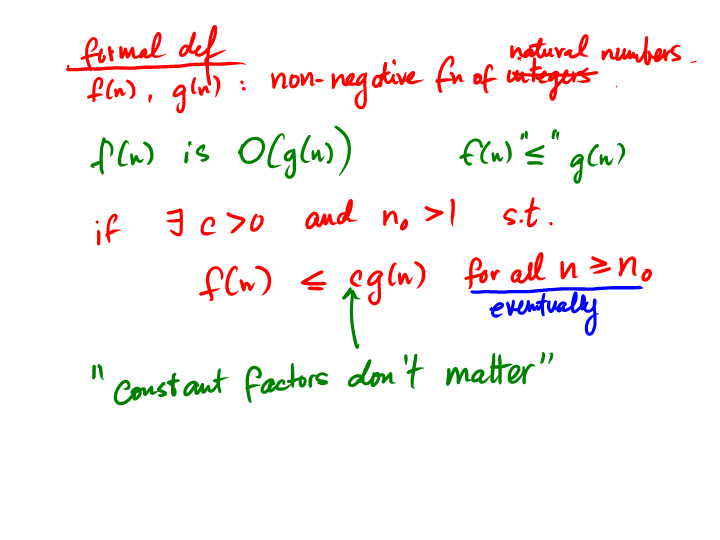 formal def
f(n), g(n) : non-negative fn of integers natural numbers.
f(n) is O(g(n)) f(n) "≤" g(n)
if ∃ c>0 and n₀ >1 s.t.
f(n) ≤ cg(n) for all n ≥ n₀
eventually
"constant factors don't matter"